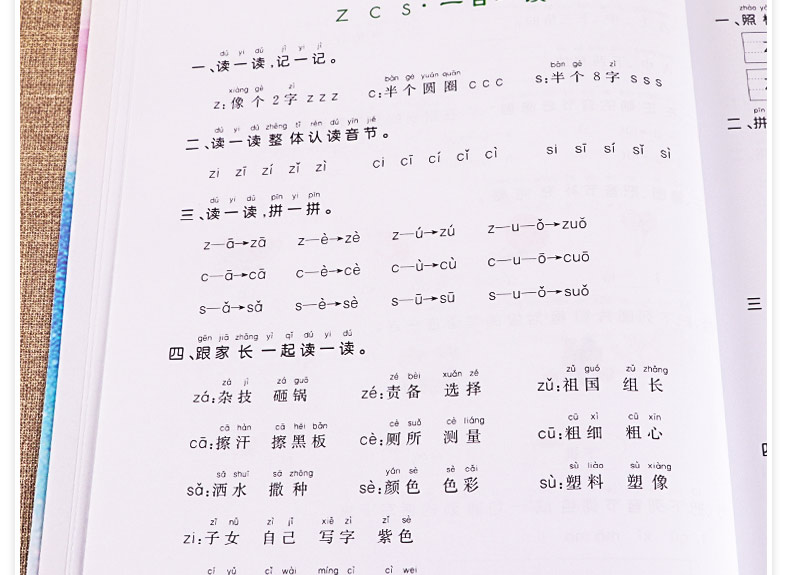 z c s
dú yi dú jì yi jì
一、读一读,记一记。
xiàng gè zì bàn gè yuán quān bàn gè zì
z:像个2字 z z z c:半个圆圈 c c c s:半个8字 s s s
dú yi dú zhěng tǐ rèn dú yīn jié
二、读一读整体认读音节。
zi zī zí zǐ zì ci cī cí cǐ cì si sī sí sǐ sì
dú yi dú pīn yi pīn
三、读一读,拼一拼。
z—ā→zā z—è→zè z—ú→zú z—u—ǒ→zuǒ
c—ā→cā c—è→cè c—ù→cù c—u—ō→cuō
s—ǎ→sǎ s—è→sè s—ū→sū s—u—ǒ→suǒ
gēn jiā zhǎng yì qǐ dú yi dú
四、跟家长一起读一读。
zá jì zá guō zé bèi xuǎn zé zǔ guó zǔ zhǎng
zá:杂技 砸锅 zé:责备 选择 zǔ:祖国 组长
cā hàn cā hēi bǎn cè suǒ cè liáng cū xì cū xīn
cā:擦汗 擦黑板 cè:厕所 测量 cū:粗细 粗心
sǎ shuǐ sǎ zhǒng yán sè sè cǎi sù liào sù xiàng
sǎ:洒水 撒种 sè:颜色 色彩 sù:塑料 塑像
zǐ nǚ zì jǐ xiě zì zǐ sè
zi:子女 自己 写字 紫色
cí yǔ cǐ wài míng cí cì wei
一、照
二、拼
三